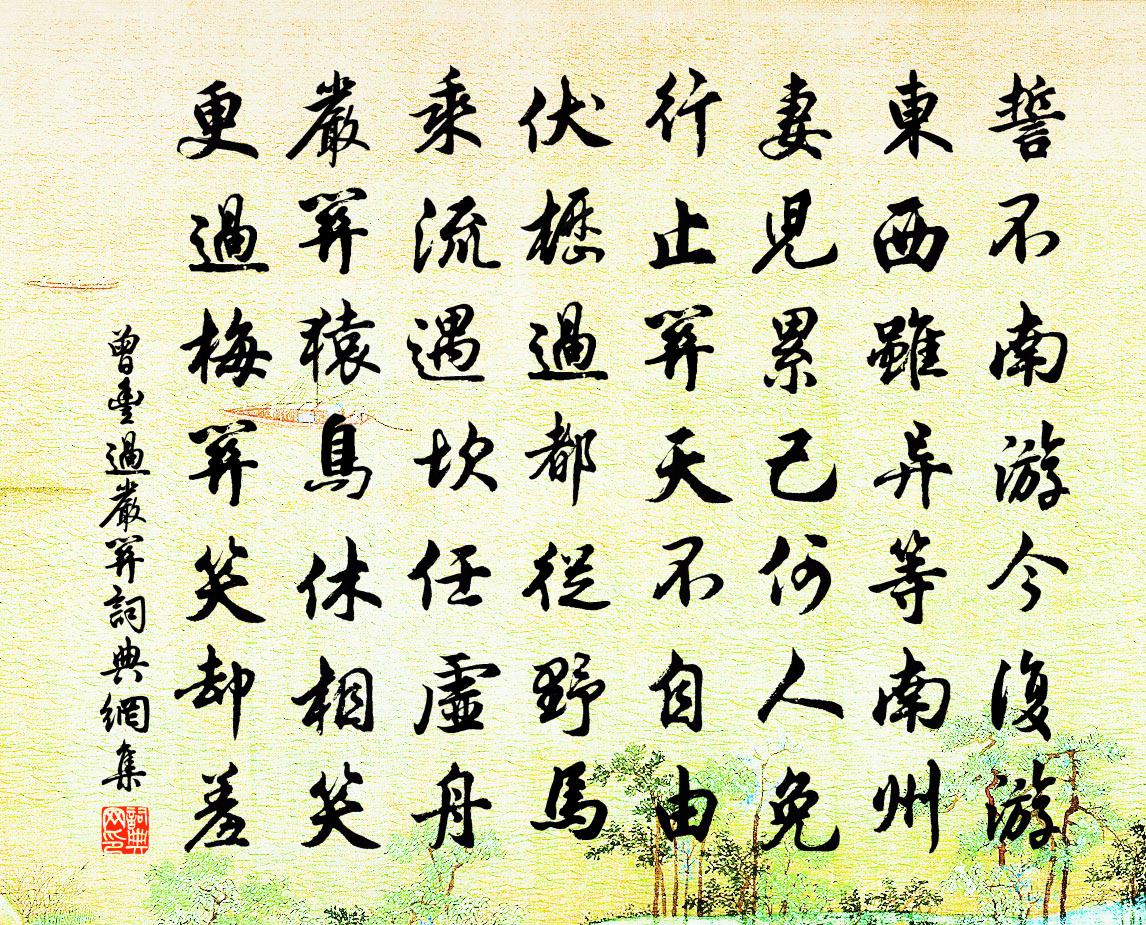 誓不南游今復游
東西雖异等南州
妻兒累己何人免
行止關天不自由
伏櫪過都從野馬
乘流遇坎任虛舟
嚴關猿鳥休相笑
更過梅關笑却羞
曾豐過嚴關詞典網集
詞典網印